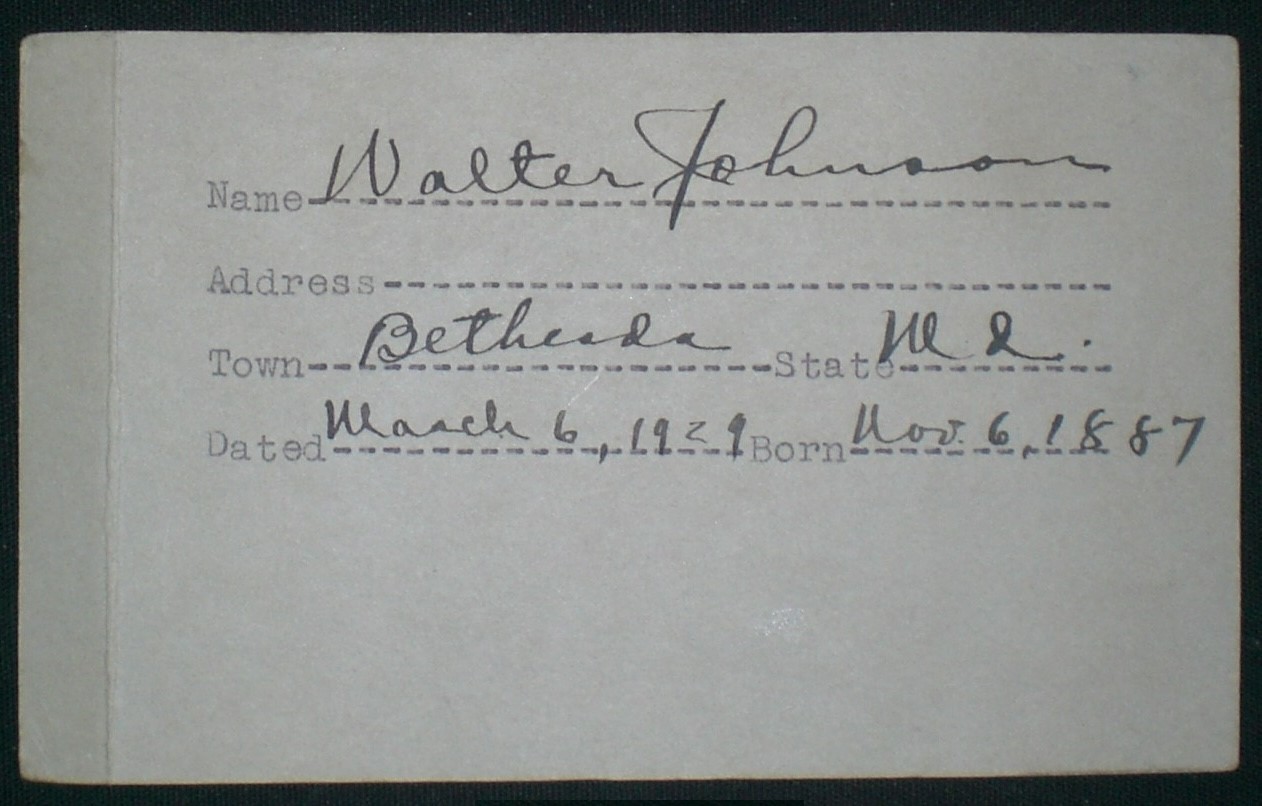 Name Walter Johnson
Address
Town Bethesda State Md.
Dated March 6, 1929 Born Nov. 6, 1887